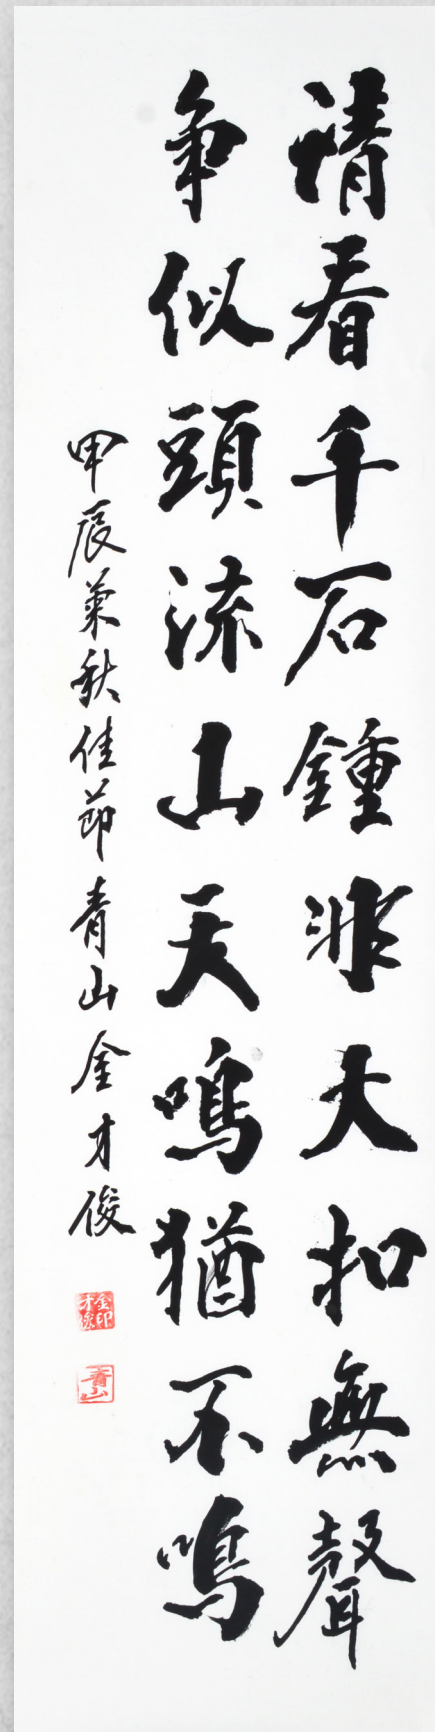 請看千石鍾非大扣無聲
争似頭流山天鳴猶不鳴
甲辰菊秋佳節青山金才俊
金印才俊
青山